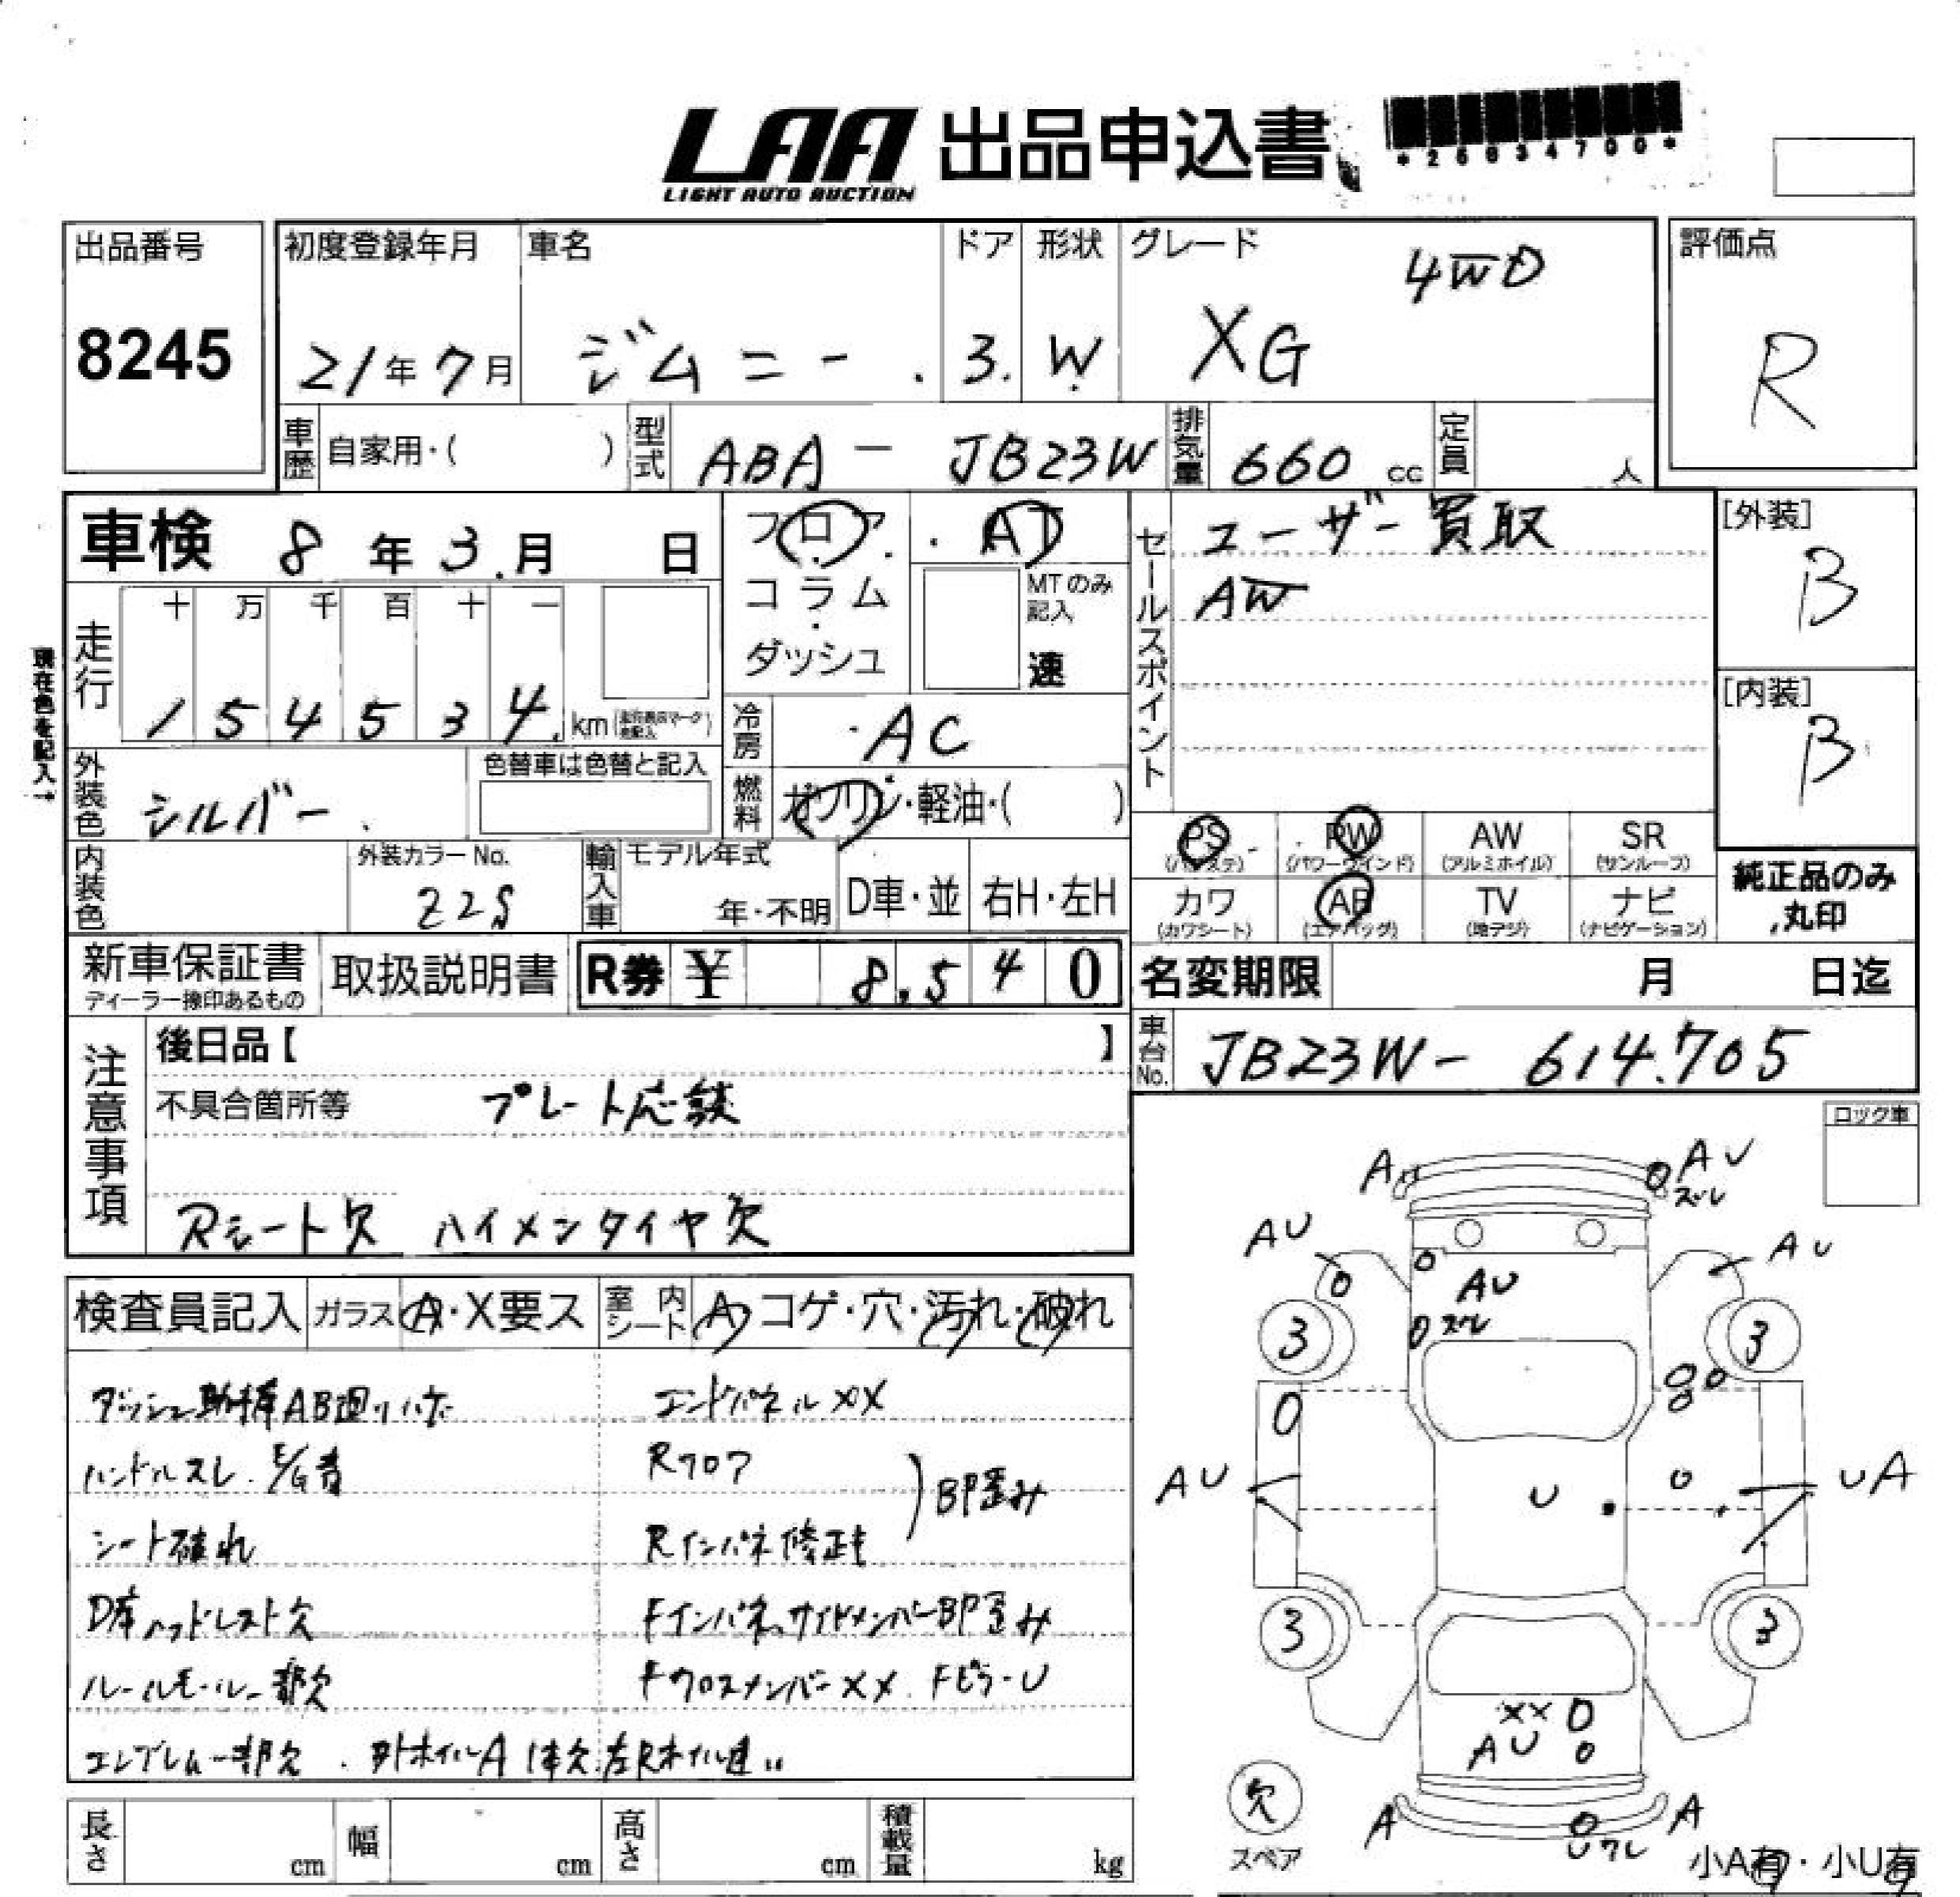 LAA 出品申込書
LIGHT AUTO AUCTION
*25034700*
出品番号 初度登録年月 車名 ドア 形状 グレード 4WD 評価点
8245 21年7月 ジムニー 3. W XG R
車歴 自家用・( ) 型式 ABA - JB23W 排気量 660 cc 定員 人
車検 8年3月 日 フロア AT セールスポイント ユーザー買取 [外装]
コラム MTのみ記入 AW B
ダッシュ 速
走行 十 万 千 百 十 一
1 5 4 5 3 4 km
現在色を記入→
冷房 AC [内装]
B
外装色 シルバー 色替車は色替と記入 燃料 ガソリン・軽油・( )
PS (パワステ) PW (パワーウインド) AW (アルミホイル) SR (サンルーフ)
内装色 外装カラーNo. Z2S 輸入車 モデル年式 年・不明 D車・並 右H・左H
カワ (カワシート) AB (エアバッグ) TV (地デジ) ナビ (ナビゲーション) 純正品のみ丸印
新車保証書 ディーラー捺印あるもの 取扱説明書 R券 ¥ 8,540 名変期限 月 日迄
注意事項 後日品【 】 車台No. JB23W- 614705
不具合箇所等 プレート応談
Rシート欠 ハイメンタイヤ欠
ロック車
検査員記入 ガラス A・X要ス 室内シート A・コゲ・穴・汚れ・破れ
ダッシュ助手席AB廻りハゲ エンドパネルXX
ハンドルスレ. E/G音 Rフロア
シート破れ Rインパネ修正キ BP歪み
D席ヘッドレスト欠 Fインパネ、サイドメンバーBP歪み
ルーフモール一部欠 FクロスメンバーXX. Fピラ-U
エンブレム一部欠. ホイルA 1本欠 左Rホイル違い
A AU ズレ
AU AU
AU
ズレ
3 3
AU U UA
3 3
XX
AU
欠
スペア
A A
ワレ
小A有・小U有
長さ cm 幅 cm 高さ cm 積載量 kg